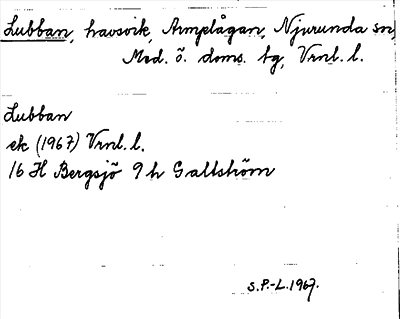 Lubban, havsvik, Armsågan, Njurunda sn,
Med. ö. doms. tg, Vrnl. l.
Lubban
ek (1967) Vrnl. l.
16 H Bergsjö 9 h Gallström
S.P.-L. 1967.